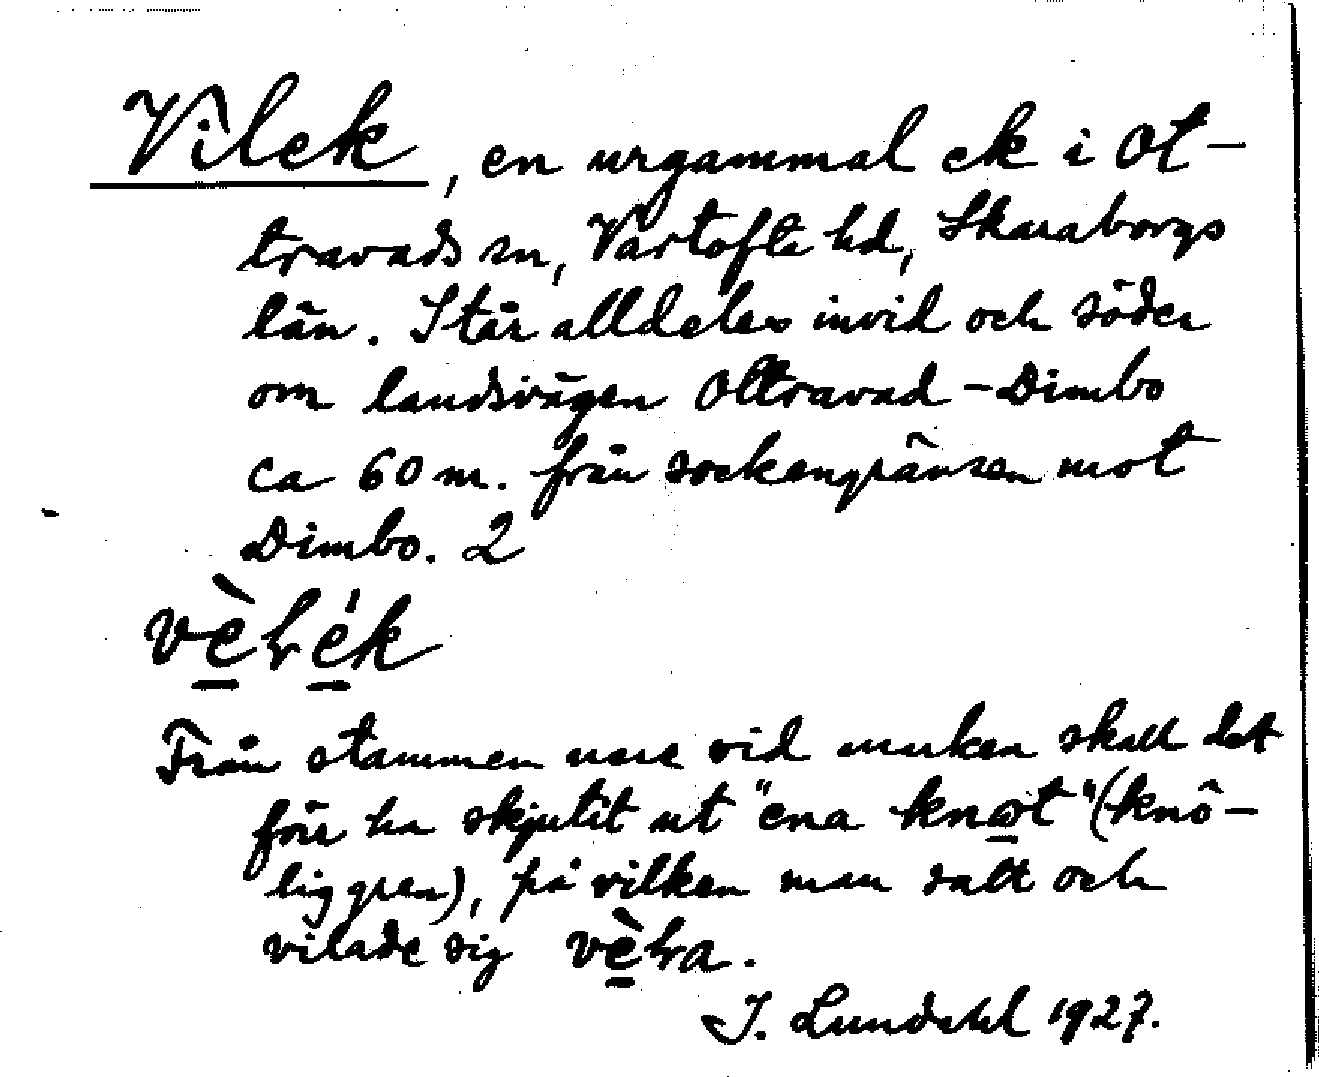 Vilek, en urgammal ek i Ot-
travads sn, Vartofta hd, Skaraborgs
län. Står alldeles invid och söder
om landsvägen Ottravad - Dimbo
ca 60 m. från sockengränsen mot
Dimbo. 2
vè̠lé̠k
Från stammen nere vid marken skall det
förr ha skjutit ut "ena kno̠t" (knö-
lig gren), på vilken man satt och
vilade sig vè̠la.
J. Lundahl 1927.